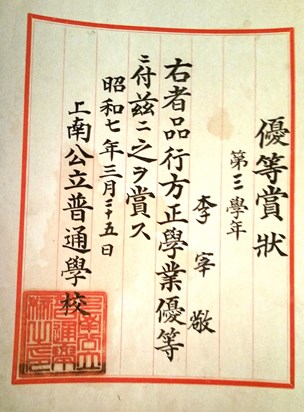 優等賞狀
第三學年
李宰敬
右者品行方正學業優等
ニ付茲ニ之ヲ賞ス
昭和七年三月二十五日
上南公立普通學校